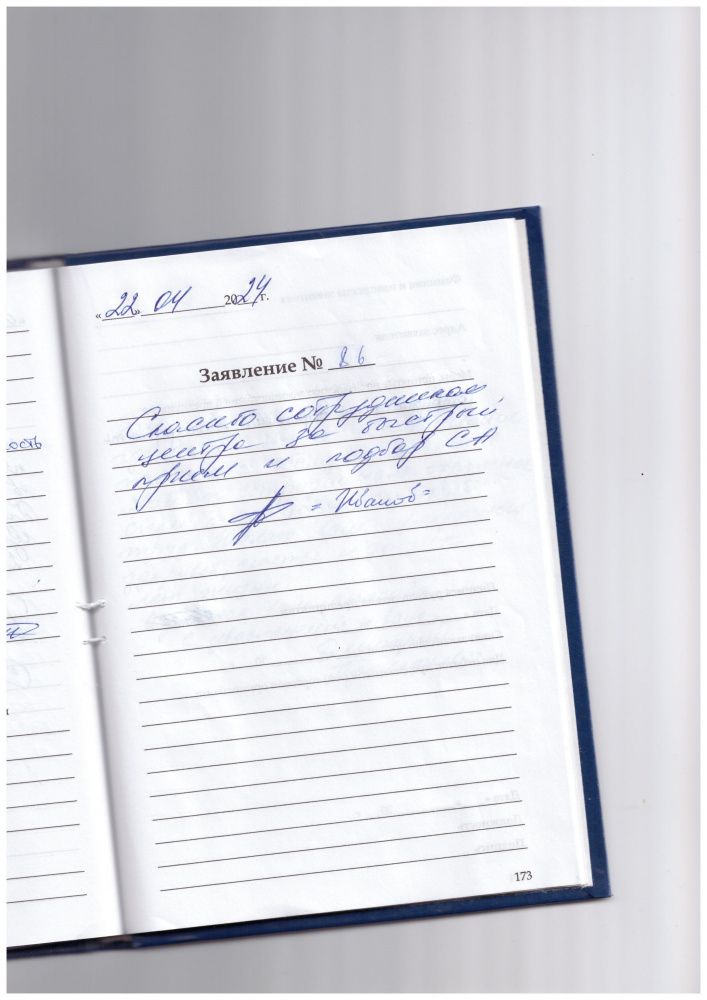 «22» 04 2024г.
Заявление № 86
Спасибо сотрудникам
центра за быстрый
прием и подбор СА
= Иванов =
ость
173